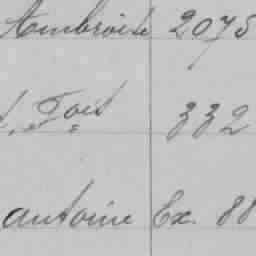 Ambroise 2075
332
Antoine Ex. 88